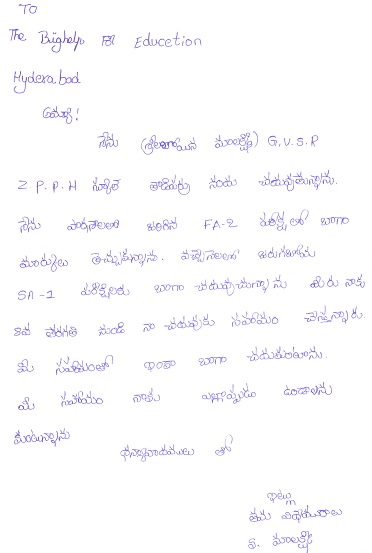 TO
The Bighelp For Educetion
Hyderabad
అయ్యా!
నేను G.V.S.R
Z.P.P.H స్కూల్ నందు చదువుతున్నాను.
నేను పాఠశాలలో జరిగిన FA-2 పరీక్షలో బాగా
మార్కులు తెచ్చుకున్నాను. వచ్చేనెలలో జరుగబోయే
SA-1 పరీక్షలకు బాగా చదువుచున్నాను మీరు నాకు
తరగతి నుండి నా చదువుకు సహాయం చేస్తున్నారు
మీ సహాయంతో ఇంకా బాగా చదుకుంటాను.
మీ సహాయం నాకు ఎల్లప్పుడు ఉండాలను
కుంటున్నాను
ధన్యావాదములు తో
ఇట్లు
తమ విధేయురాలు